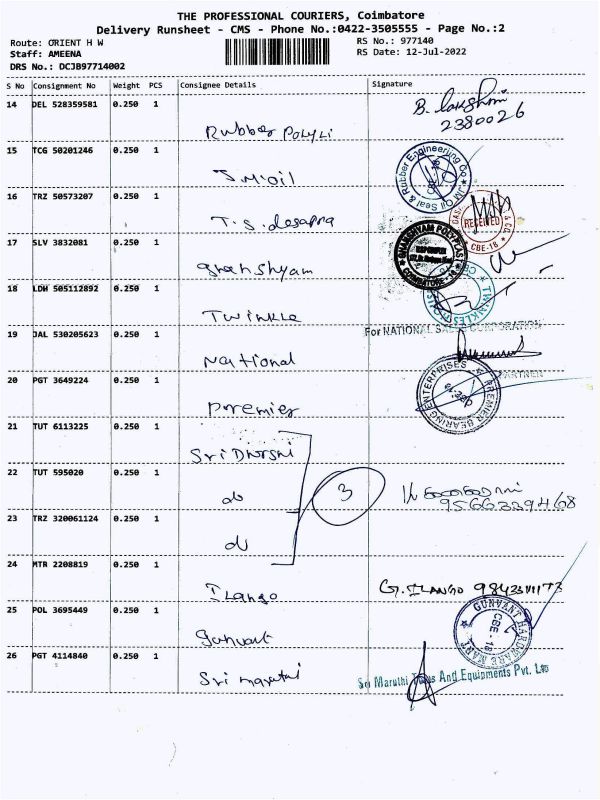 THE PROFESSIONAL COURIERS, Coimbatore
Delivery Runsheet - CMS - Phone No.:0422-3505555 - Page No.:2
Route: ORIENT H W RS No.: 977140
Staff: AMEENA RS Date: 12-Jul-2022
DRS No.: DCJB97714002
S No Consignment No Weight PCS Consignee Details Signature
14 DEL 528359581 0.250 1
B. Lakshmi
2380026
Rubber Polyli
15 TCG 50201246 0.250 1
Rubber Engineering Co JM Oil Seal &
S.M.oil
16 TRZ 50573207 0.250 1
RECEIVED
CBE-18
T.S.
17 SLV 3832081 0.250 1
GHANSHYAM POLYPLAS
COIMBATORE
ghanshyam
18 LDH 505112892 0.250 1
TWINKLE
19 JAL 530205623 0.250 1
For NATIONAL CORPORATION
National
PARTNER
20 PGT 3649224 0.250 1
PREMIER BEARING ENTERPRISES
Premier
21 TUT 6113225 0.250 1
Sri
22 TUT 595020 0.250 1
do
3
23 TRZ 320061124 0.250 1
do
24 MTR 2208819 0.250 1
Ilango
G. ILANGO
25 POL 3695449 0.250 1
GUNVANT HARDWARE MART
CBE-18
gunvant
26 PGT 4114840 0.250 1
Sri Maruthi And Equipments Pvt. Ltd
Sri